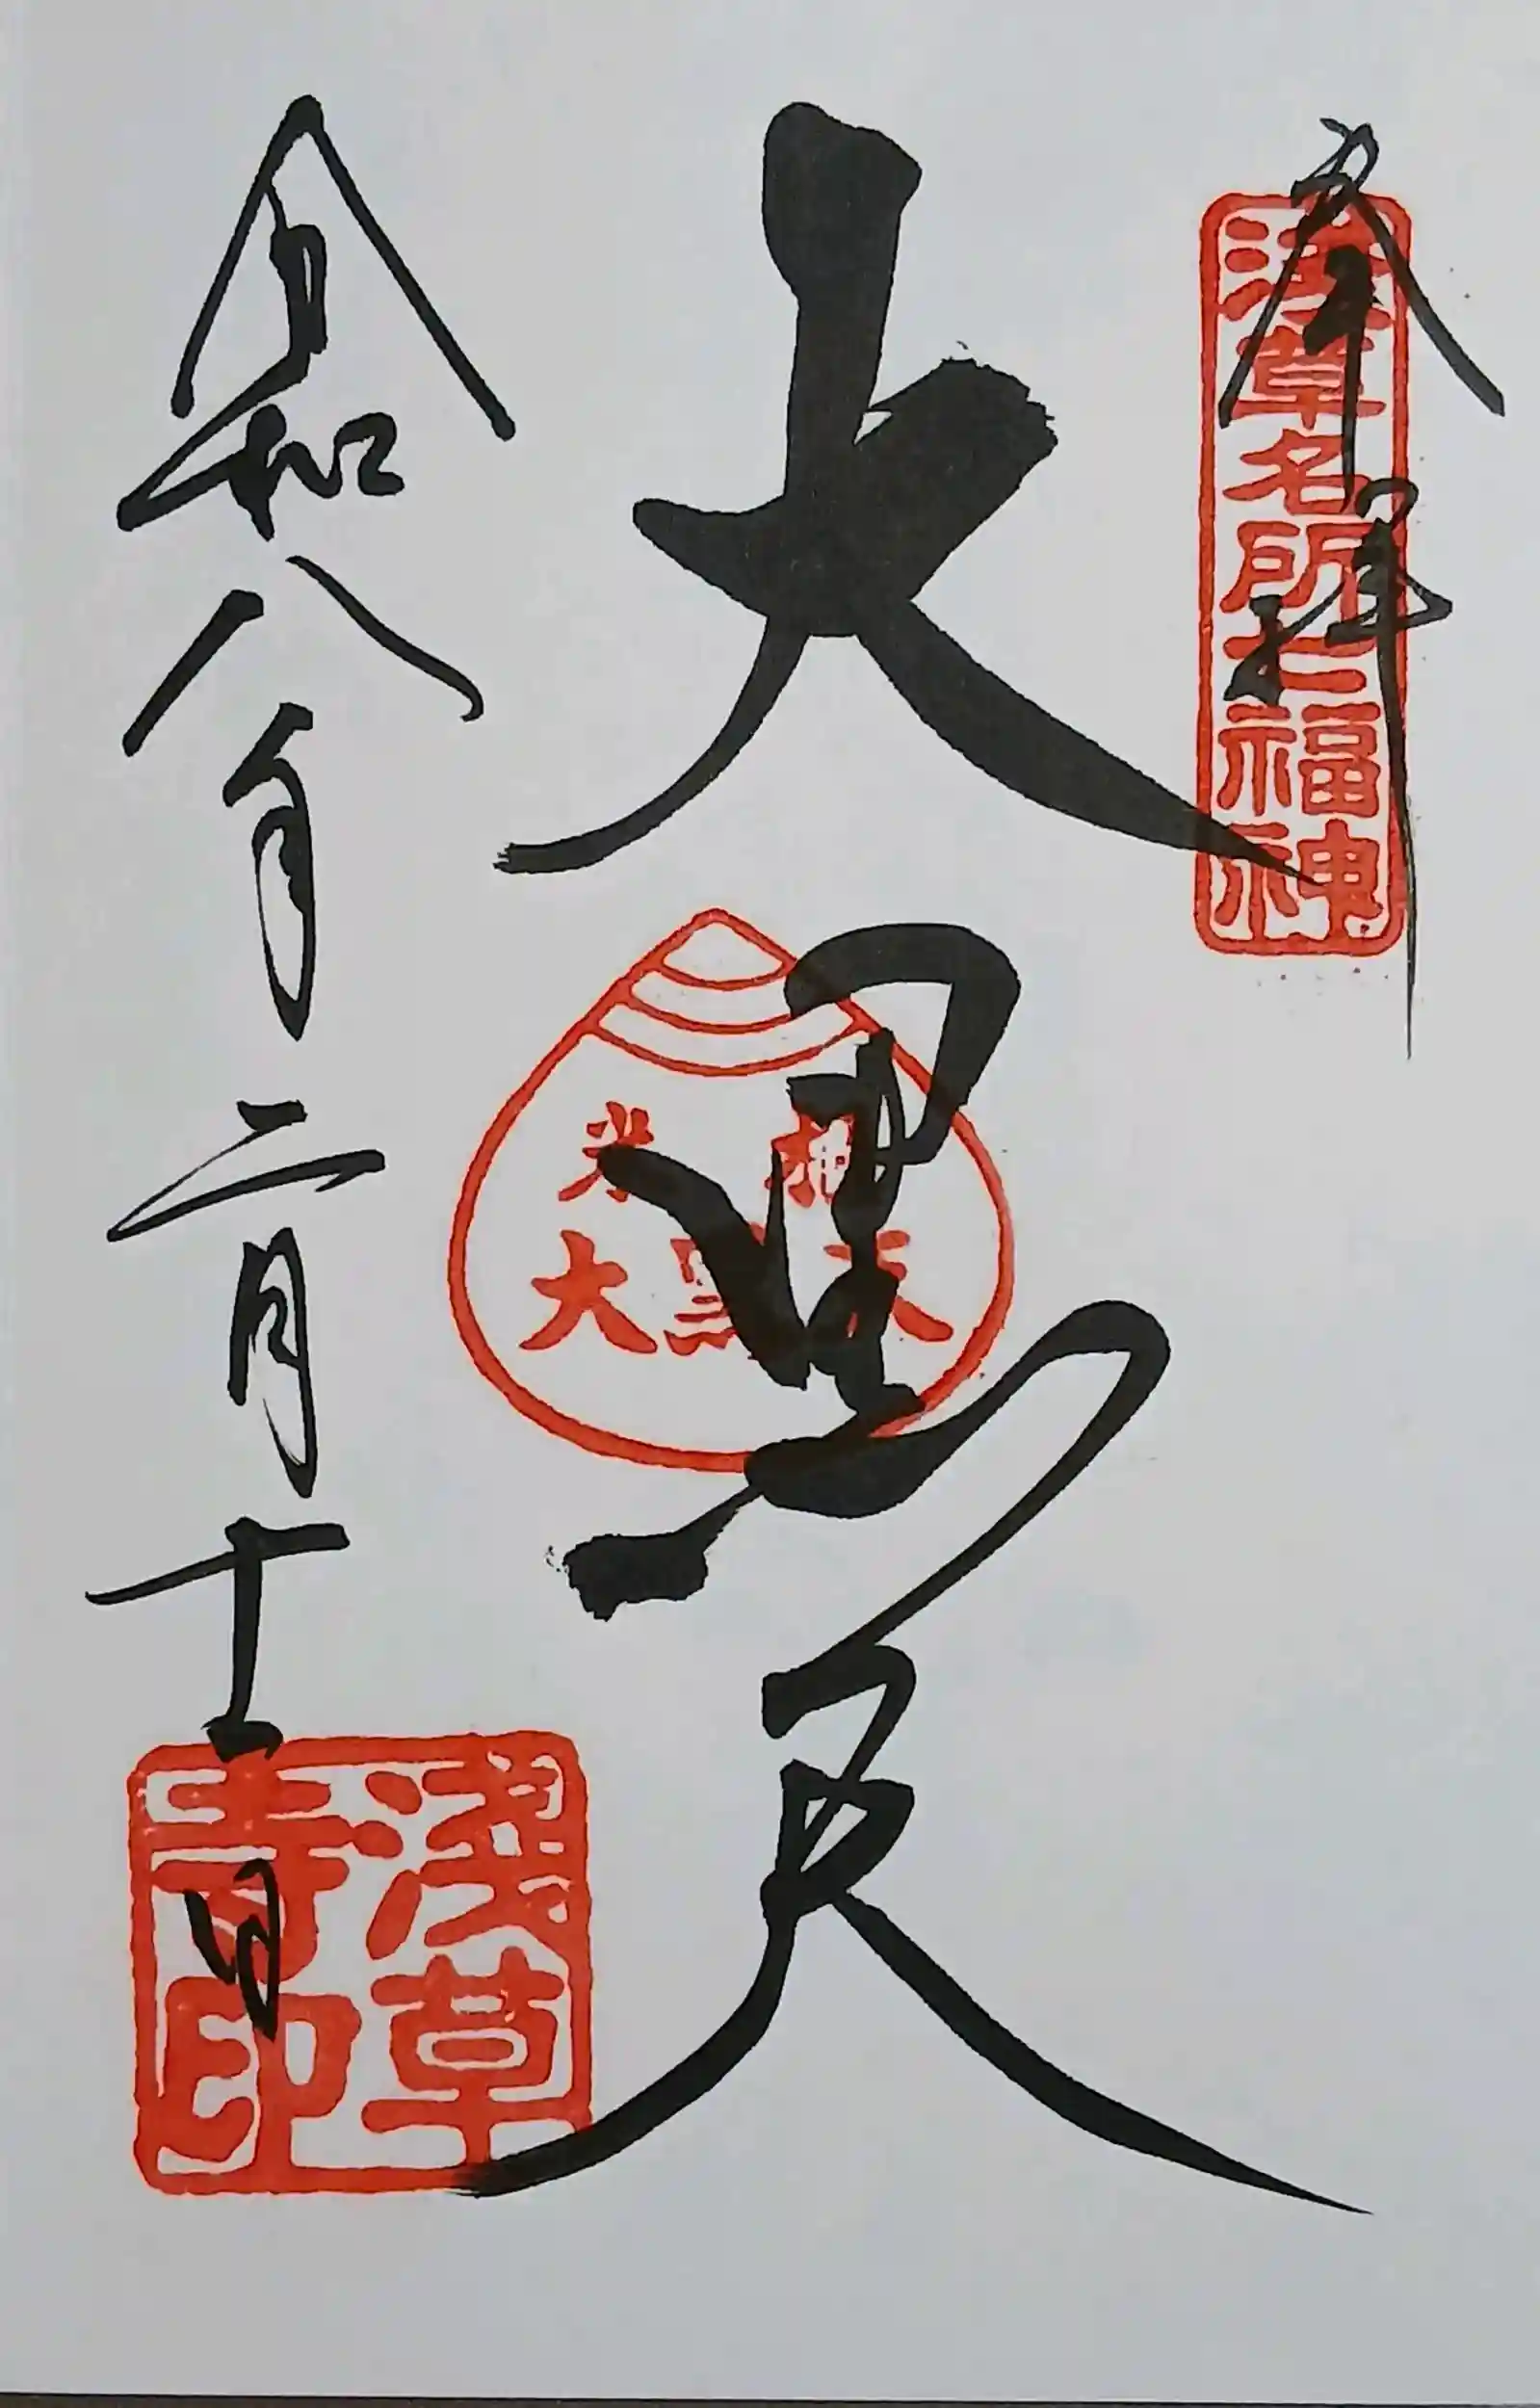 奉拝
浅草名所七福神
大黒天
米
大黒天
令和八年二月十二日
淺草
寺印